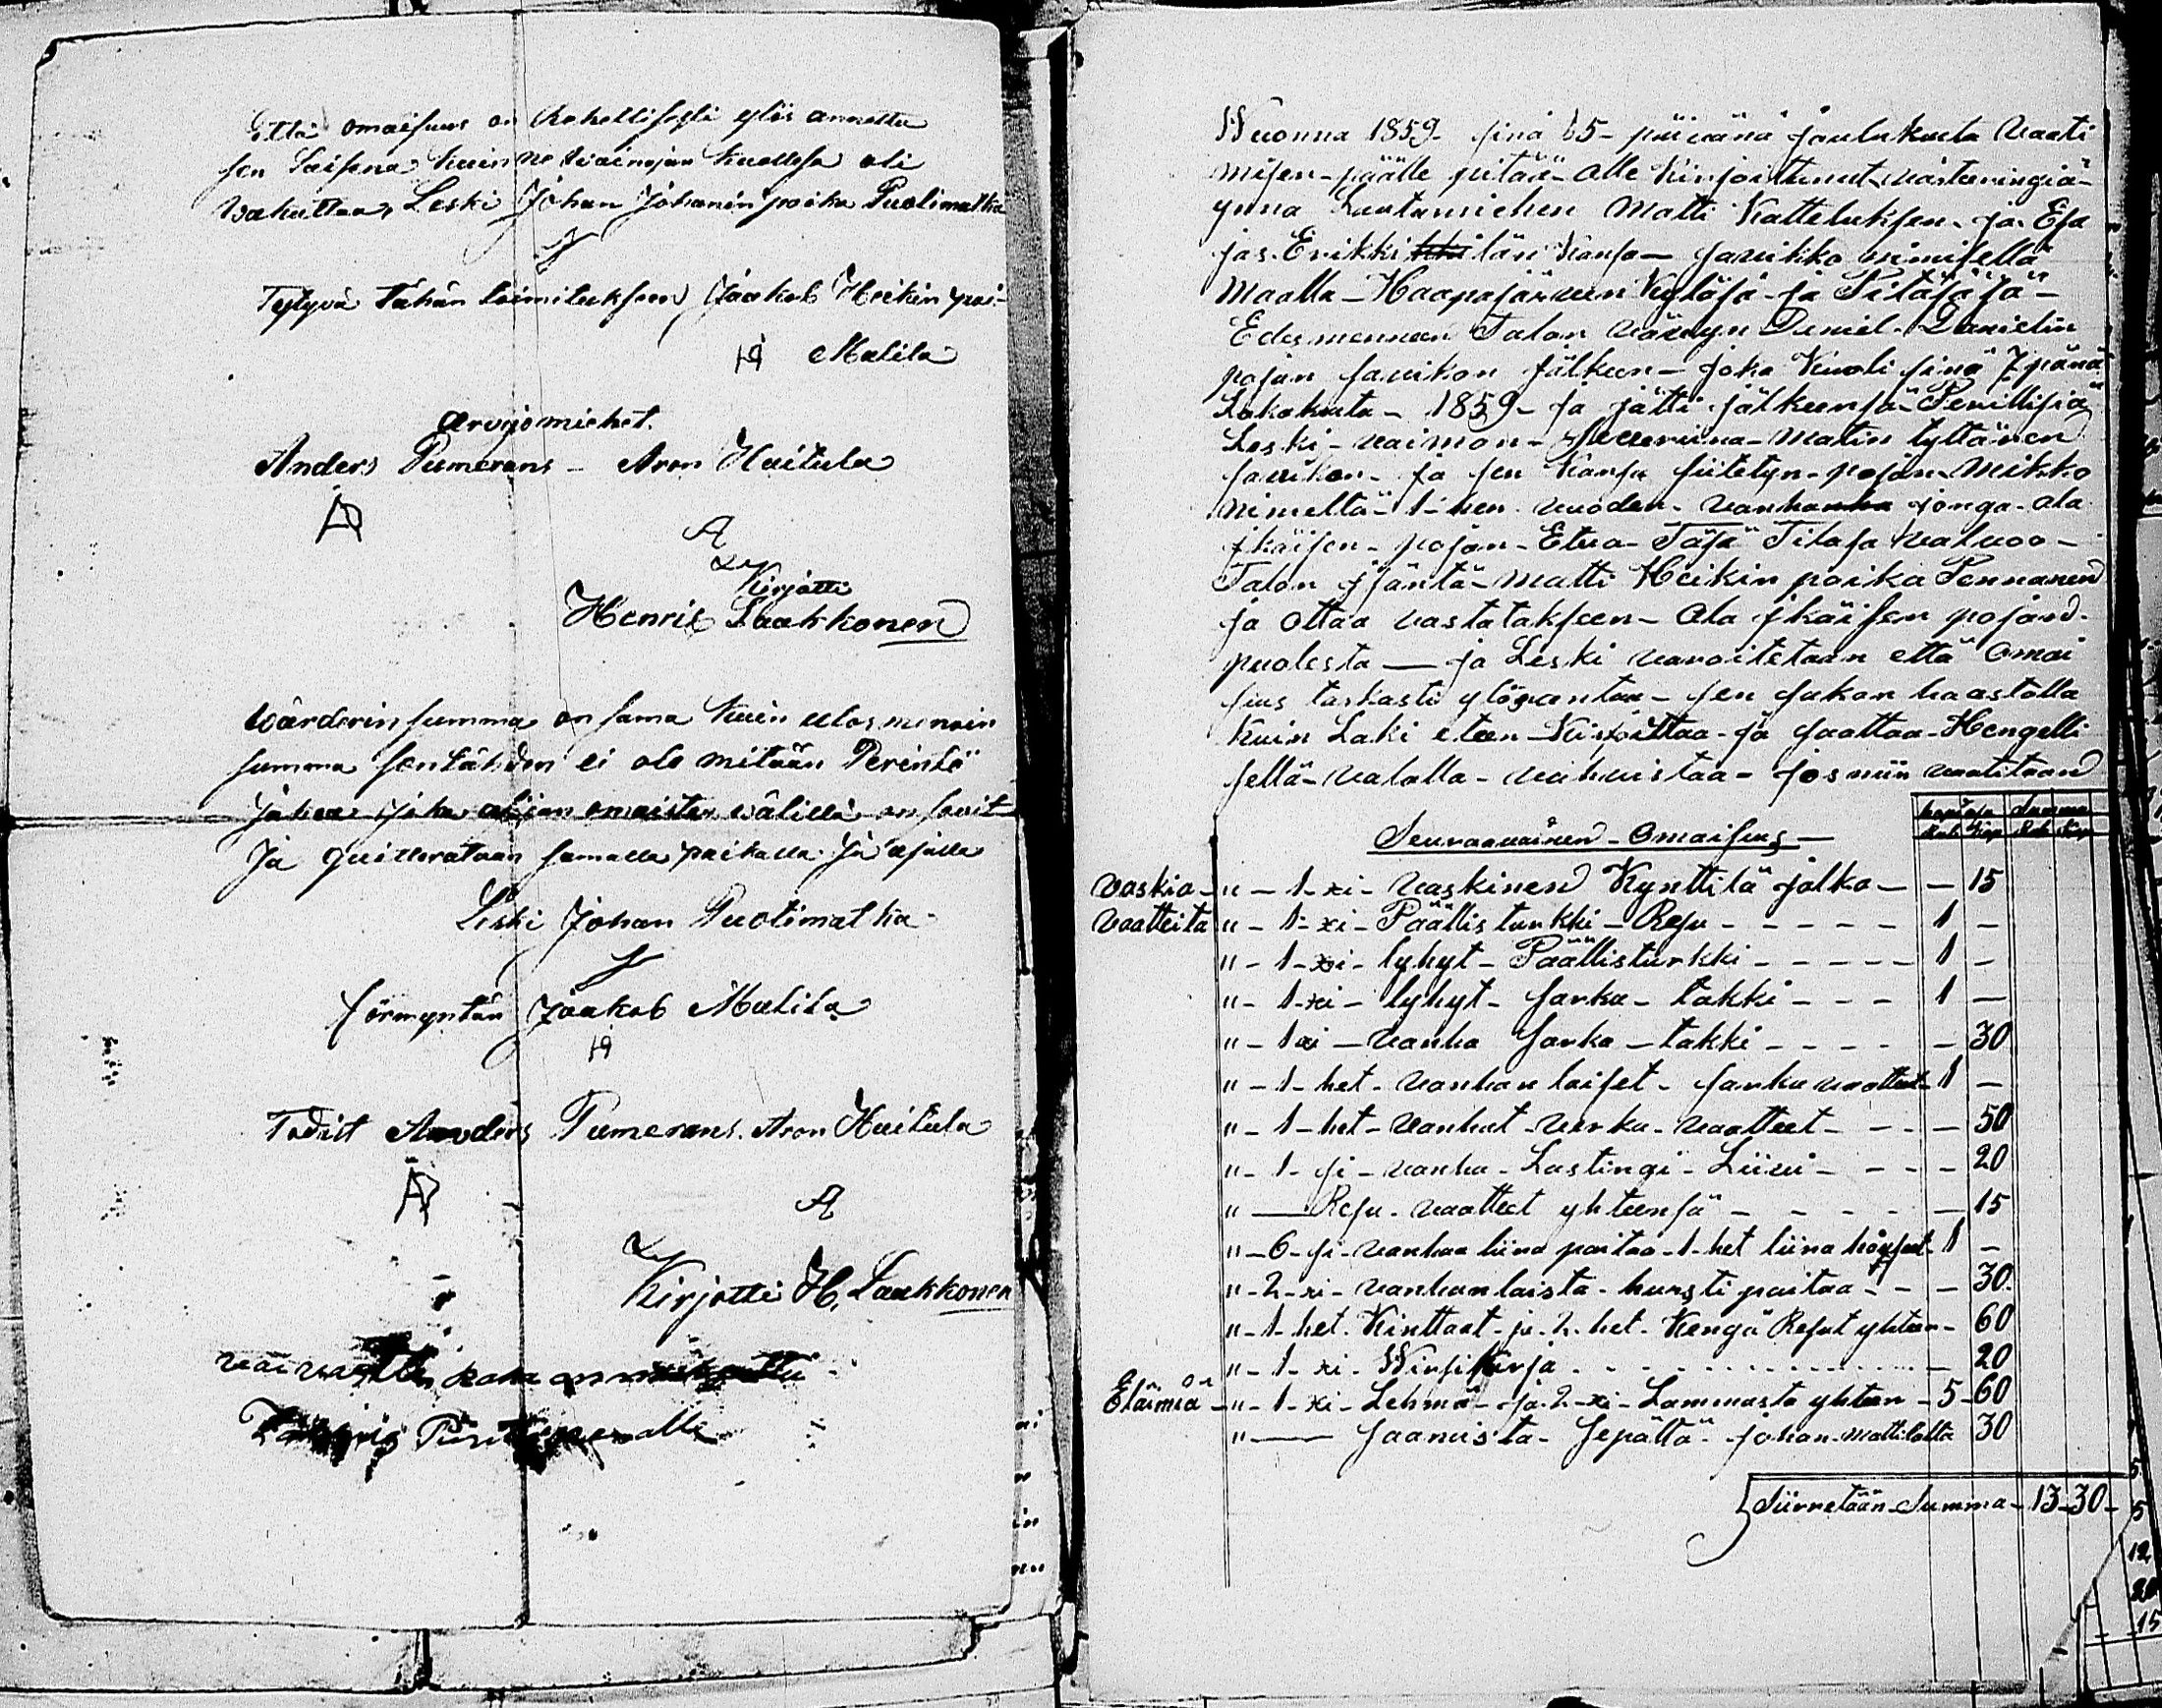 Että omaisuus on Rehellisesti ylös annettu
sen laisena kuin se vainajan kuollesa oli
vakuttaa, Leski Johan Johanin poika Puolimatka
Tytyvä tähän toimitukseen Jaakob Heikin poi-
Malila
arvijomiehet.
Anders Pumerans - Aron Huitula
Kirjotti
Henrik Laakkonen
Wärderin summa on sama kuin ulos menoin
summa sentähden ei ole mitään Perintö
jakoa joka asian omaisten wälillä on sovit
Ja quitterataan samalla paikalla ja ajalla
Leski Johan Puolimatka
förmyntäri Jaakob Malila
Todist Anders Pumerans. Aron Huitula
Kirjotti H. Laakkonen
Wuonna 1859 - sinä 15 - päivänä joulukuuta vaati
misen - päälle pitää - alle kirjoittanut - värteringiä -
ynnä Lautamiehen Matti Katteluksen - ja Esa
jas. Erikki län kansa - Savikko nimisellä
Maalla - Haapajärven kylösä - ja Pitäjäsä -
Edesmenneen Talon vävyn Daniel - Danielin
pojan Savikon jälkeen - joka Kuoli sinä 7 pänä
Lokakuta - 1859 - ja jätti jälkeensä - Perillisiä
Leski - vaimon - Severiina - Matin tyttären
Savikon - ja sen kansa siitetyn - pojan - Mikko
nimeltä - 1 - hen vuoden - vanhan jonga - ala
jkäisen - pojan - Etua - Täsä Tilasa valvoo -
Talon jsäntä - Matti Heikin poika Pennanen
ja ottaa vastataksen - Ala jkäisen pojan -
puolesta - ja Leski varoitetaan että omai
sus tarkasti ylösantaa - sen sakon haastolla
kuin Laki eteen - Kirjoittaa - ja saattaa - Hengelli
sellä - valalla - vahvistaa - jos niin vaatitaan
hopiasa Summa
Rub Kop Rub Kop
Seuraavainen - Omaisus -
vaskia - " - 1 - xi - vaskinen Kynttilä jalka - - 15
vaatteita " - 1 - xi - Päällis turkki - Resu - - - - - 1 -
" - 1 - xi - lyhyt - Päällisturkki - - - - - 1 -
" - 1 - xi - lyhyt - sarka - takki - - - 1 -
" - 1 xi - vanha sarka - takki - - - - - 30
" - 1 - het - vanhan laiset - sarka vaatteet - 1 -
" - 1 - het - vanhat - verka - vaatteet - - - - 50
" - 1 - si - vanha - Lastingi - Liivi - - - - 20
" - Resu - vaatteet yhteensä - - - - - 15
" - 6 - si - vanhaa liina paitaa - 1 - het liina 1 -
" - 2 - xi - vanhan laista - hursti paitaa - - - 30
" - 1 - het. Kinttaat - ja - 2 - het - Kengä Resut yhteen - 60
" - 1 - xi - Wirsikirja - - - - - - - 20
Eläimiä - " - 1 - xi - Lehmä - ja - 2 - xi - Lammasta yhteen - 5 - 60
" - Saamista - Sepältä - Johan - Mattilalta 30
Siirretään - Summa - 13 - 30 -